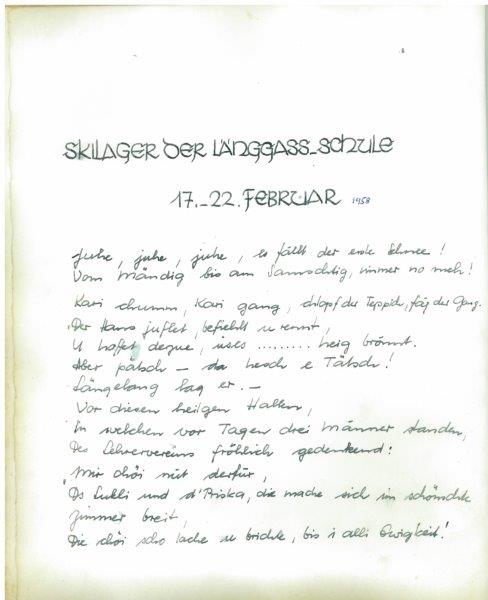 SKILAGER DER LÄNGGASS-SCHULE
17.-22. FEBRUAR 1958
Juhe, juhe, juhe, es fällt der erste Schnee!
Vom Mändig bis am Samschtig, nimmer no meh!
Kari chumm, Kari gang, chlopf der Teppich, fäg der Gang.
Der Hans juflet, befiehlt u rennt,
U hoffet derzue, üses ......... heig brönnt.
Aber pätsch - da hesch e Tätsch!
Längelang lag er. -
Vor diesen heilgen Hallen,
In welchen vor Tagen drei Männer standen,
Des Lehrervereins fröhlich gedenkend:
"Mir chöi nüt derfür,
Ds und d'Priska, die mache sich im schönschte
Zimmer breit,
Die chöi scho lache u brichte, bis i alli Ewigkeit!